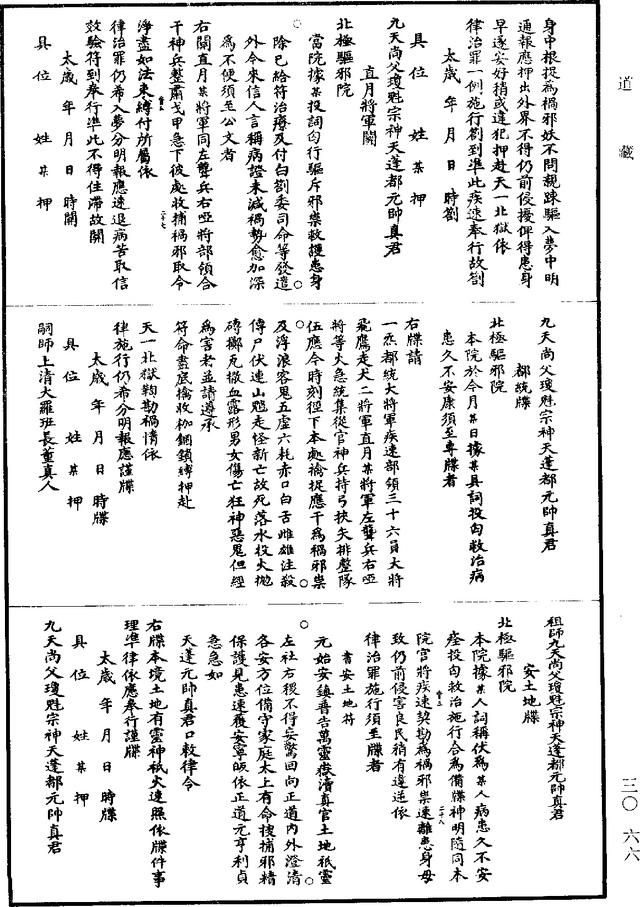 道藏
身中根捉為禍邪妖不問親踈驅入夢中明
通報應押出外界不得仍前侵擾仰得患身
早遂安好稍或違犯押赴天一北獄依
律治罪一例施行劄到準此疾速奉行故劄
太歲年月日時劄
具位姓某押
九天尚父瓊魁宗神天蓬都元帥真君
直月將軍關
北極驅邪院
當院據某投詞向行驅斥邪祟救護患身
除已給符治療及付白劄委司命等發遣
外今來信人言稱病證未減禍勢愈加深
為不便須至公文者
右關直月某將軍同左聾兵右啞將部領合
干神兵整肅戈甲急下彼處收捕禍邪取令
淨盡如法束縛付所屬依
律治罪仍希入夢分明報應速退病苦取信
效驗符到奉行準此不得住滯故關
太歲年月日時關
具位姓某押
九天尚父瓊魁宗神天蓬都元帥真君
都統牒
北極驅邪院
本院於今月某日據某具詞投向救治病
患久不安康須至專牒者
右牒請
一炁都統大將軍疾速部領三十六員大將
飛鷹走犬二將軍直月某將軍左聾兵右啞
將等火急統集從官神兵持弓挾矢排整隊
伍應今時刻徑下本處擒捉應干為禍邪祟
及浮浪客鬼五虛六耗赤口白舌雌雄注殺
傳尸伏連山魈走怪新亡故死落水投火拋
磚擲瓦撒血露形男女傷亡狂神惡鬼但經
為害者並請遵承
符命盡底擒收枷錮鎖縛押赴
天一北獄鞫勘禍情依
律施行仍希分明報應謹牒
太歲年月日時牒
具位姓某押
嗣師上清大羅班長董真人
祖師九天尚父瓊魁宗神天蓬都元帥真君
安土地牒
北極驅邪院
本院據某人詞稱伏為某人病患久不安
痊投向救治施行合為備牒神明隨同本
院官將疾速契勘為禍邪祟速離患身毋
致仍前侵害良民稍有違逆依
律治罪施行須至牒者
書安土地符
元始安鎮普告萬靈嶽瀆真官土地祇靈
左社右稷不得妄驚回向正道內外澄清
各安方位備守家庭太上有命搜捕邪精
保護見患速獲安寧皈依正道元亨利貞
急急如
天蓬元帥真君口敕律令
右牒本境土地有靈神祇火速照依牒件事
理準律依應奉行謹牒
太歲年月日時牒
具位姓某押
九天尚父瓊魁宗神天蓬都元帥真君
三〇六六